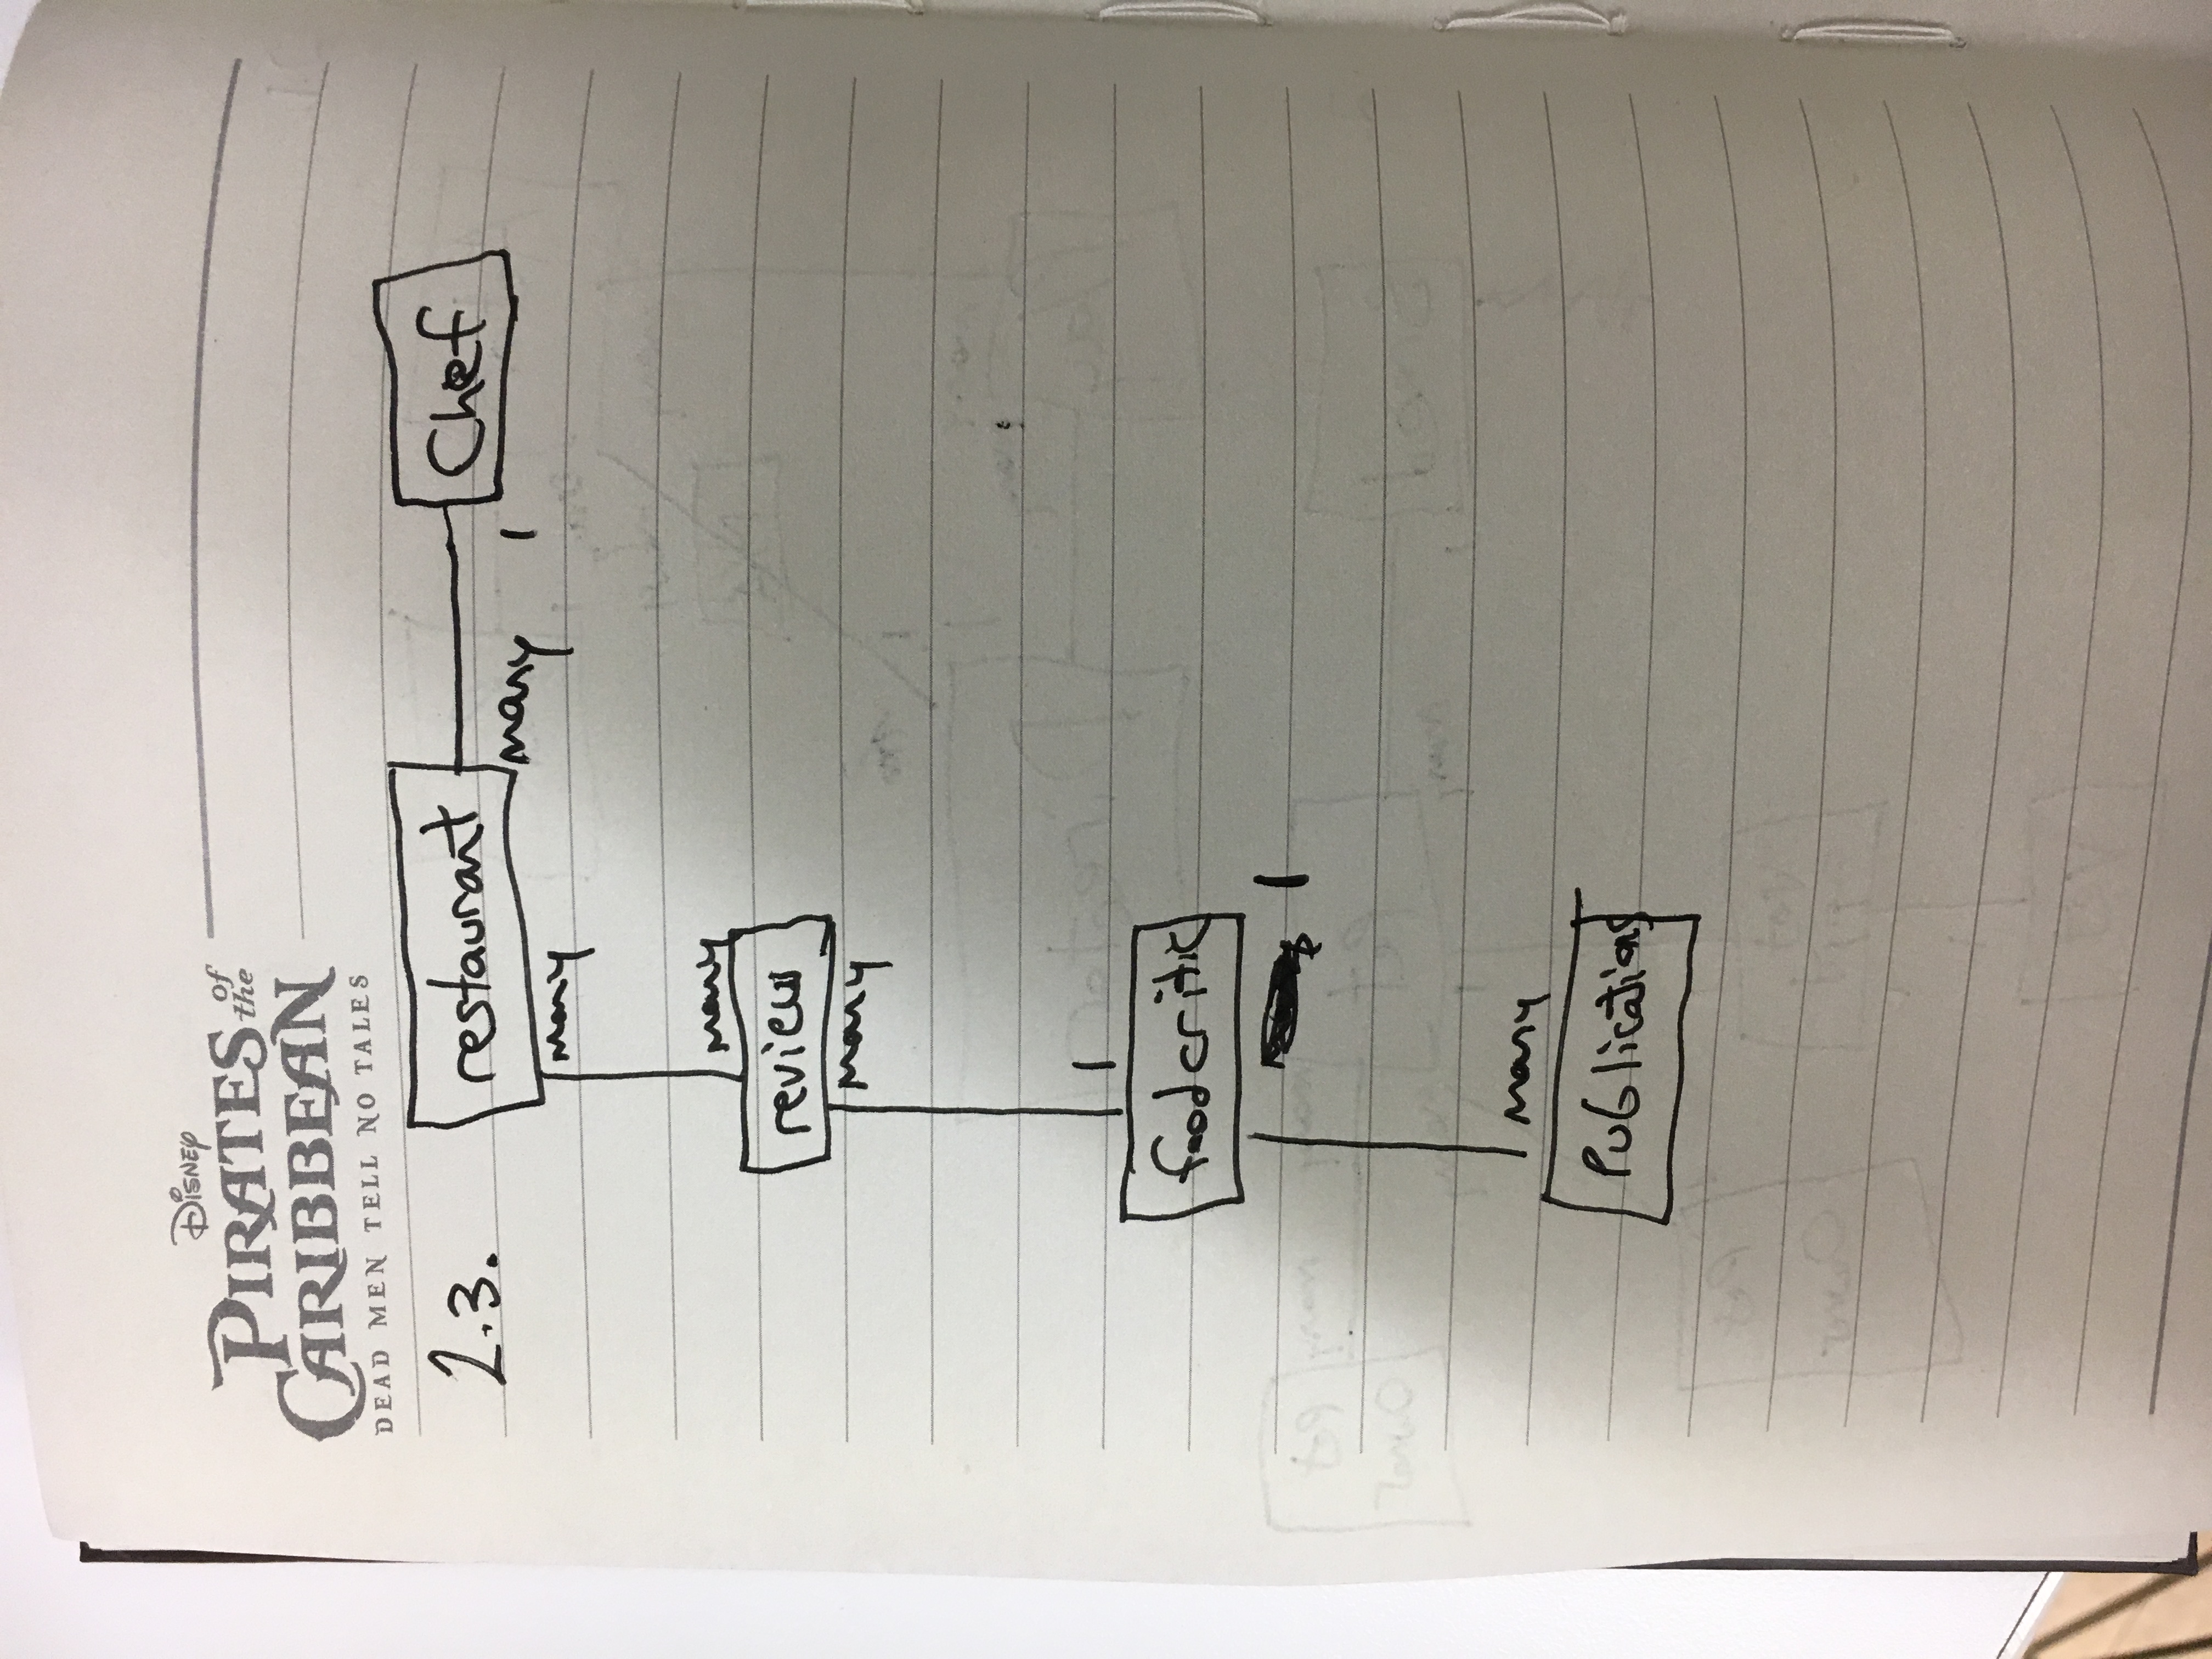 Disney
PIRATES of the
CARIBBEAN
DEAD MEN TELL NO TALES
2.3.
restaurant
Chef
many
1
many
many
review
many
1
food critic
1
many
Publications